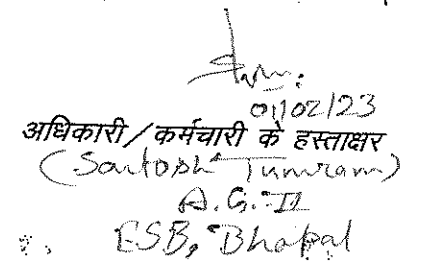 01/02/23
अधिकारी/कर्मचारी के हस्ताक्षर
(Santosh Tumram)
A.G.-II
ESB, Bhopal